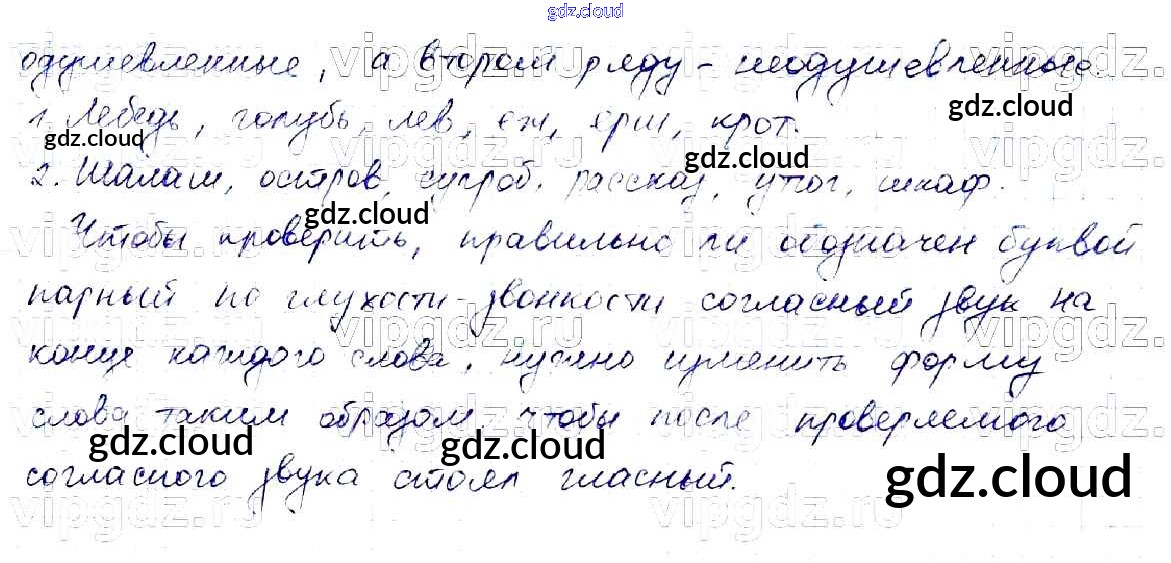 gdz.cloud
одушевленные, а втором ряду - неодушевленные.
1. Лебедь, голубь, лев, еж, ерш, крот.
2. Шалаш, остров, сугроб, рассказ, утюг, шкаф.
Чтобы проверить, правильно ли обозначен буквой
парный по глухости-звонкости согласный звук на
конце каждого слова, нужно изменить форму
слова таким образом, чтобы после проверяемого
согласного звука стоял гласный.